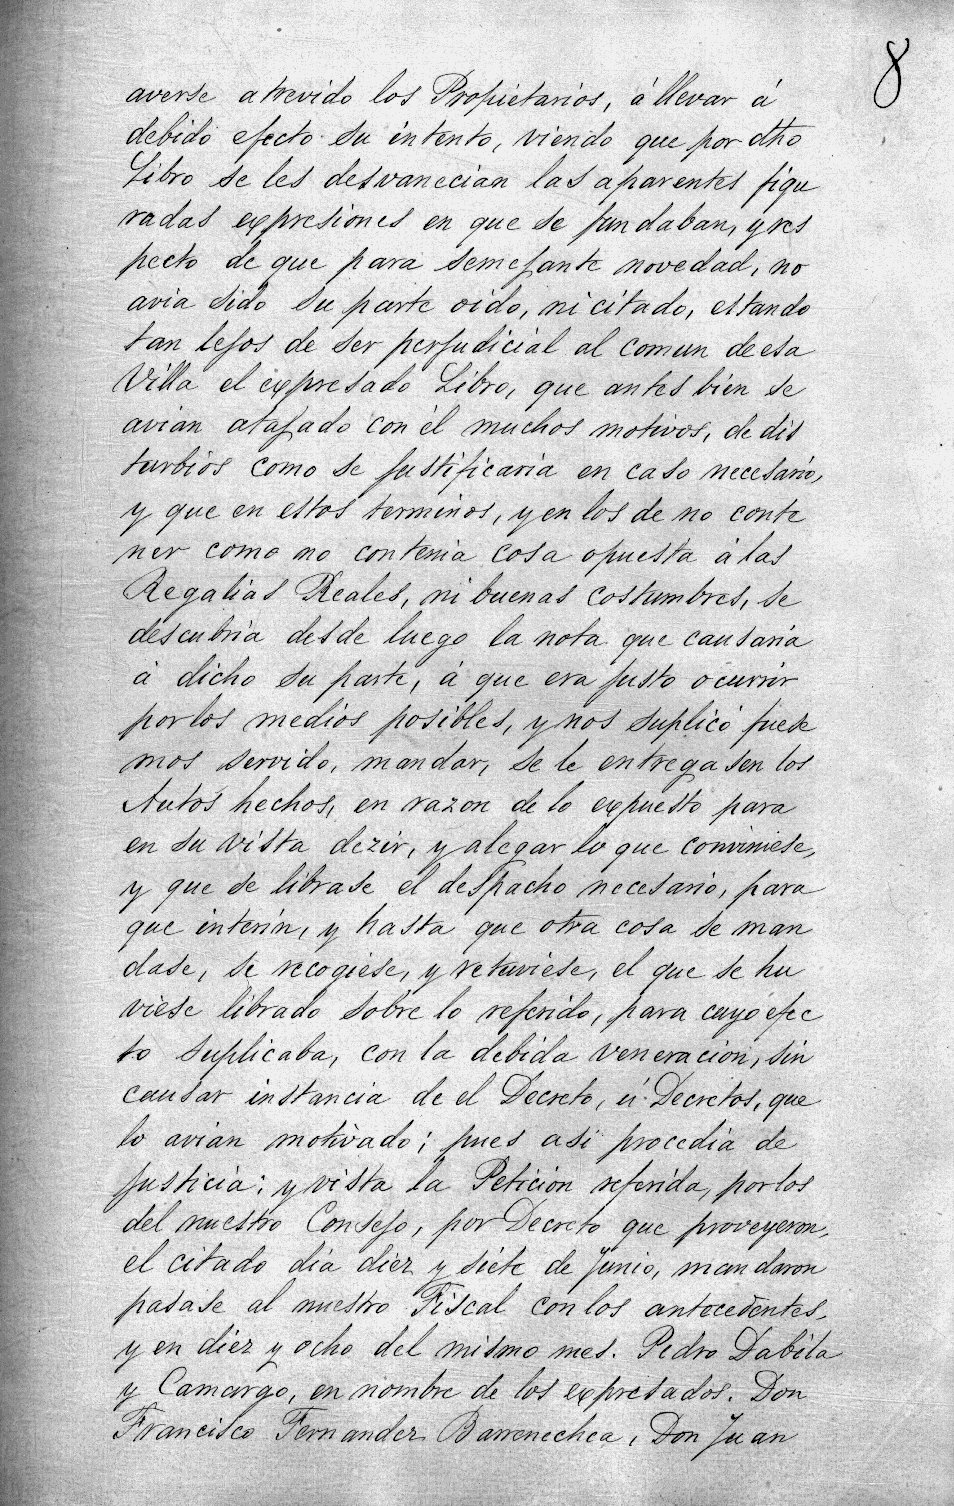 8
averse atrevido los Propietarios, á llevar á
debido efecto su intento, viendo que por dho
Libro se les desvanecian las aparentes figu
radas expresiones en que se fundaban, y res
pecto de que para semejante novedad, no
avia sido su parte oido, ni citado, estando
tan lejos de ser perjudicial al comun de esa
Villa el expresado Libro, que antes bien se
avian atajado con él muchos motivos, de dis
turbios como se justificaria en caso necesario,
y que en estos terminos, y en los de no conte
ner como no contenia cosa opuesta á las
Regalias Reales, ni buenas costumbres, se
descubria desde luego la nota que causaria
á dicho su parte, á que era justo ocurrir
por los medios posibles, y nos suplicó fuese
mos servido, mandar, se le entregasen los
Autos hechos, en razon de lo expuesto para
en su vista dezir, y alegar lo que conviniese,
y que se librase el despacho necesario, para
que interin, y hasta que otra cosa se man
dase, se recogiese, y retuviese, el que se hu
viese librado sobre lo referido, para cuyo efec
to suplicaba, con la debida veneracion, sin
causar instancia de el Decreto, ú Decretos, que
lo avian motivado; pues asi procedia de
justicia; y vista la Peticion referida, por los
del nuestro Consejo, por Decreto que proveyeron,
el citado dia diez y siete de Junio, mandaron
pasase al nuestro Fiscal con los antecedentes,
y en diez y ocho del mismo mes. Pedro Dabila
y Camargo, en nombre de los expresados. Don
Francisco Fernandez Barrenechea, Don Juan